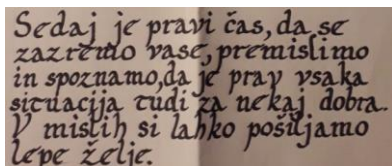 Sedaj je pravi čas, da se
zazremo vase, premislimo
in spoznamo, da je prav vsaka
situacija tudi za nekaj dobra.
V mislih si lahko pošiljamo
lepe želje.